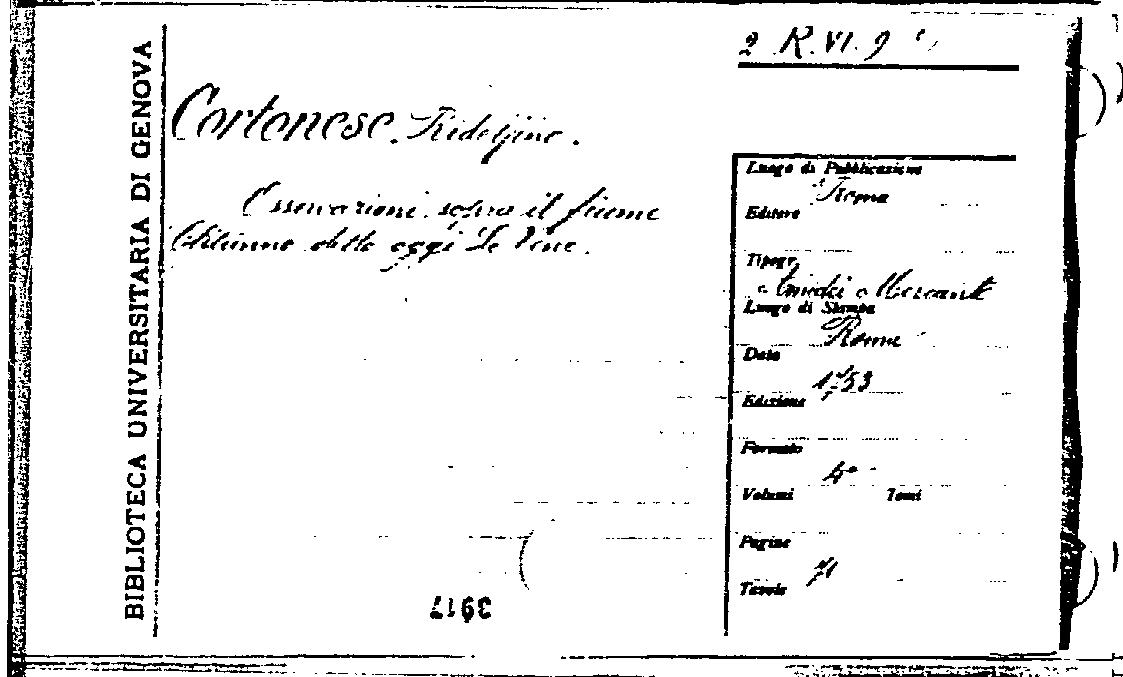 BIBLIOTECA UNIVERSITARIA DI GENOVA
2 R.VI.9
Cortonese. Fidelfino.
Osservazioni sopra il fiume
Clitunno detto oggi Le Vene.
3917
Luogo di Pubblicazione
Roma
Editore
Tipogr.
Amidei Mercante
Luogo di Stampa
Roma
Data
1753
Edizione
Formato
4°
Volumi Tomi
Pagine
71
Tavole